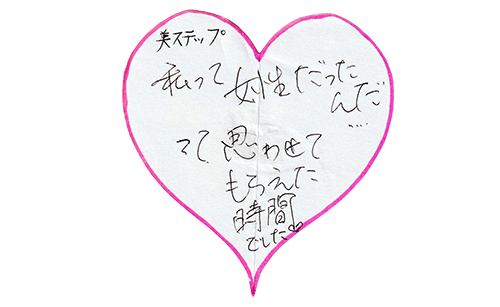 美ステップ
私って女性だった
んだ
…
って、思わせて
もらえた
時間
でした♡